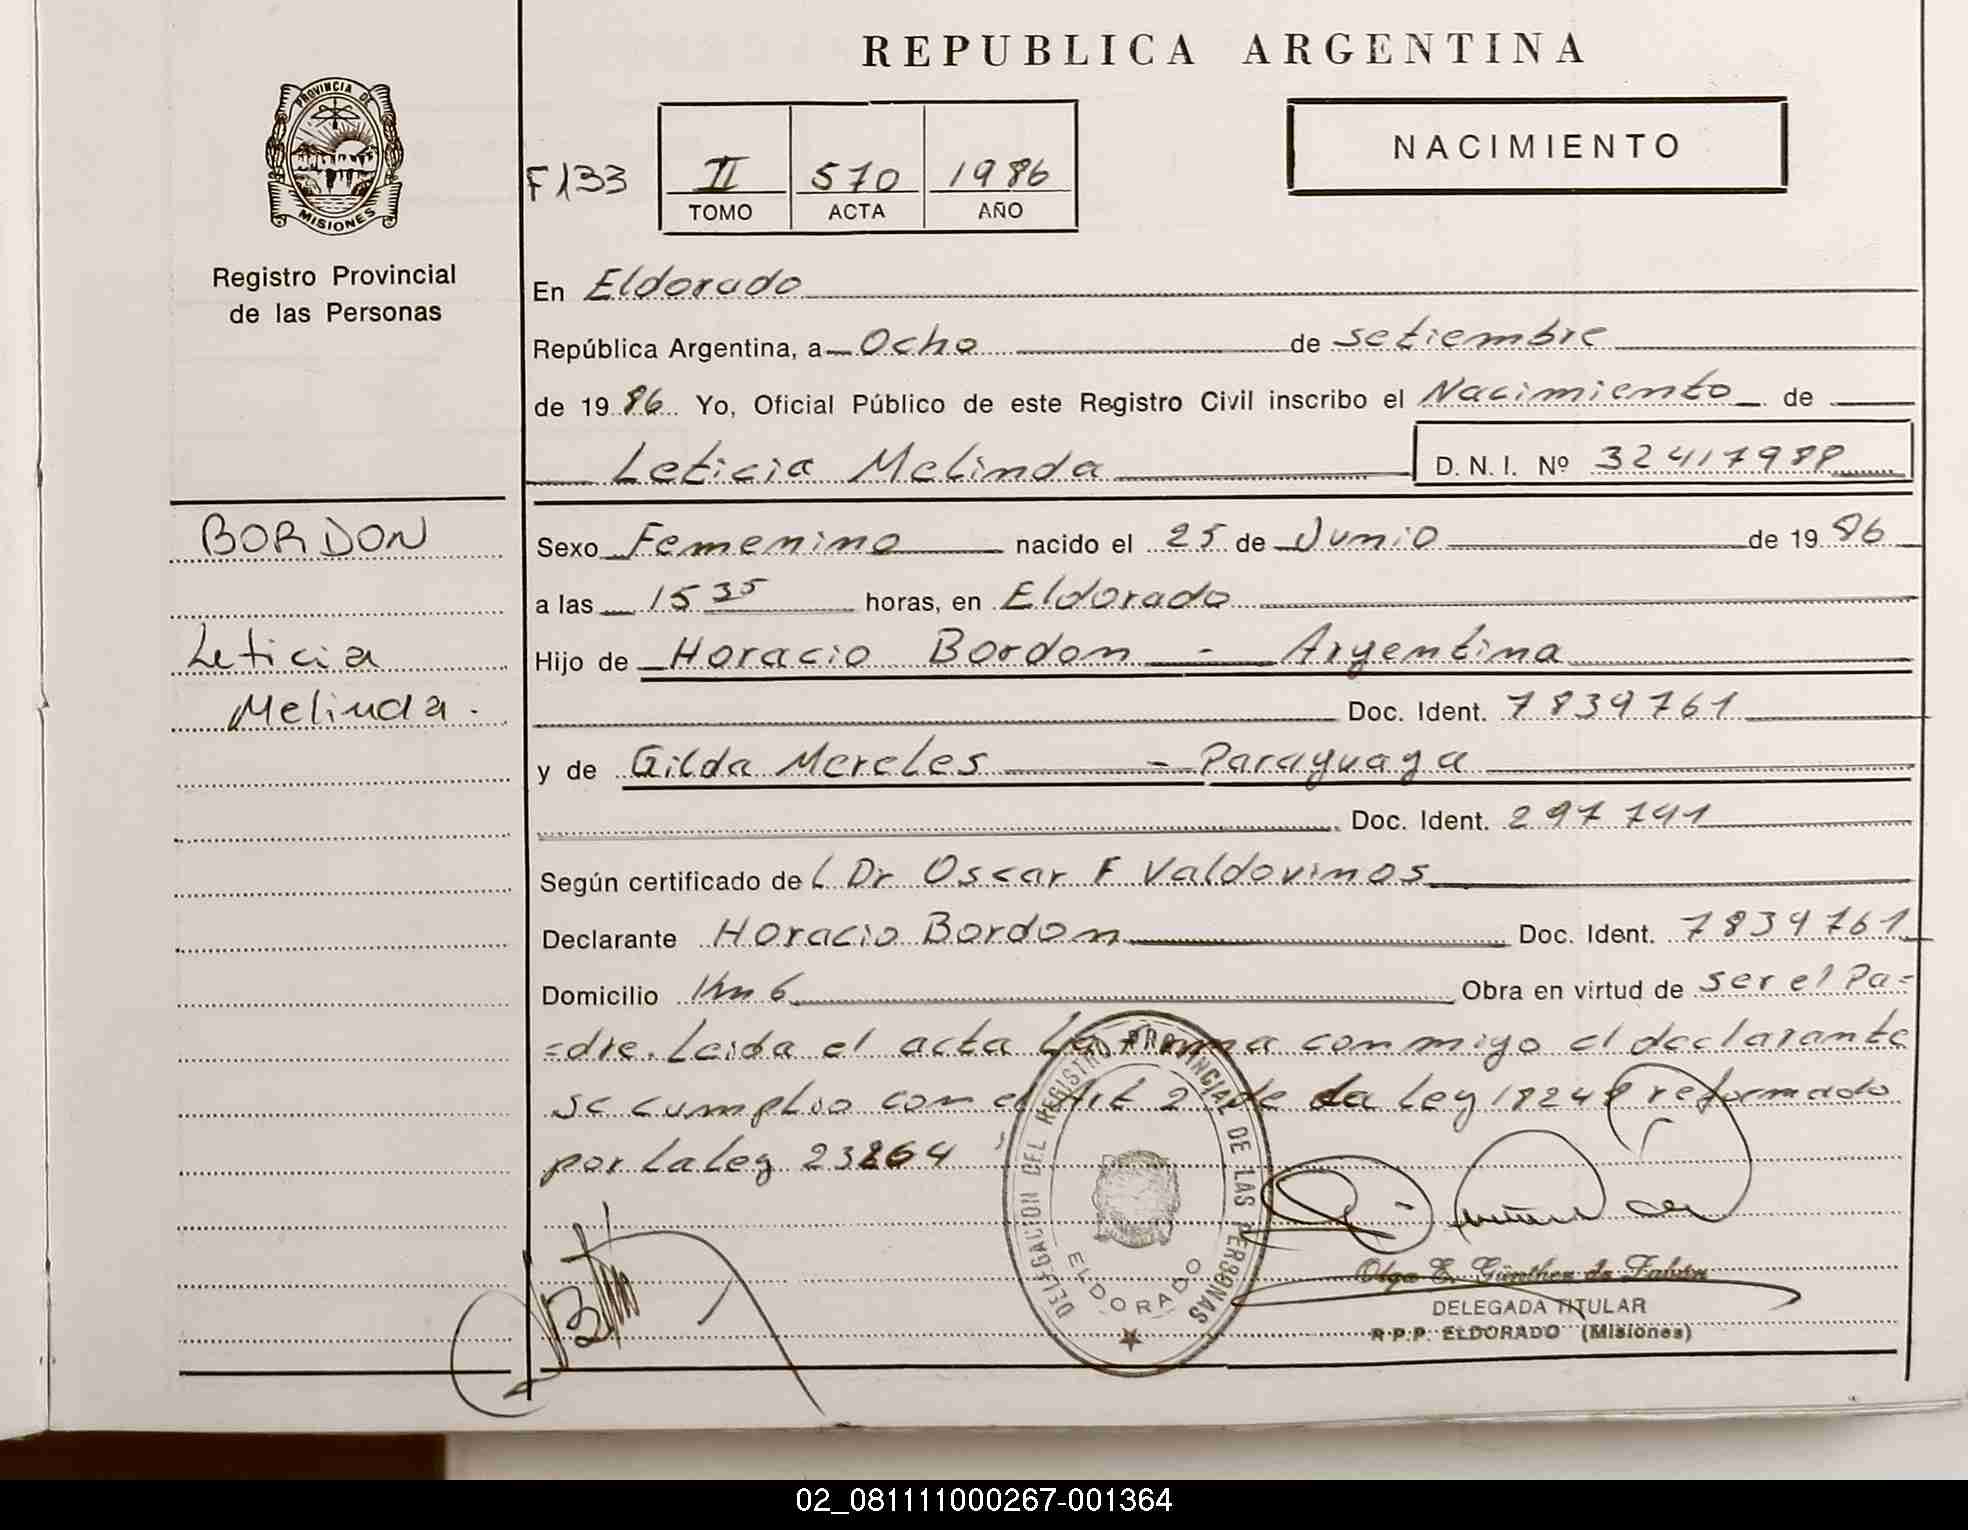 REPUBLICA ARGENTINA
PROVINCIA DE
MISIONES
Registro Provincial
de las Personas
F133
II 570 1986
TOMO ACTA AÑO
NACIMIENTO
En Eldorado
República Argentina, a Ocho de setiembre
de 1986 Yo, Oficial Público de este Registro Civil inscribo el Nacimiento de
Leticia Melinda D. N. I. Nº 32417988
BORDON
Leticia
Melinda.
Sexo Femenino nacido el 25 de Junio de 1986
a las 15 35 horas, en Eldorado
Hijo de Horacio Bordon - Argentina
Doc. Ident. 7839761
y de Gilda Mereles - Paraguaya
Doc. Ident. 297741
Según certificado de Dr Oscar F Valdovinos
Declarante Horacio Bordon Doc. Ident. 7839761
Domicilio Km 6 Obra en virtud de ser el Pa=
=dre. Leida el acta La firma conmigo el declarante
se cumplio con el Art 2 de la Ley 18248 reformado
por la Ley 23264
DELEGACION DEL REGISTRO PROVINCIAL DE LAS PERSONAS
ELDORADO
Olga E. Günther de Falvin
DELEGADA TITULAR
R.P.P. ELDORADO (Misiones)
02_081111000267-001364